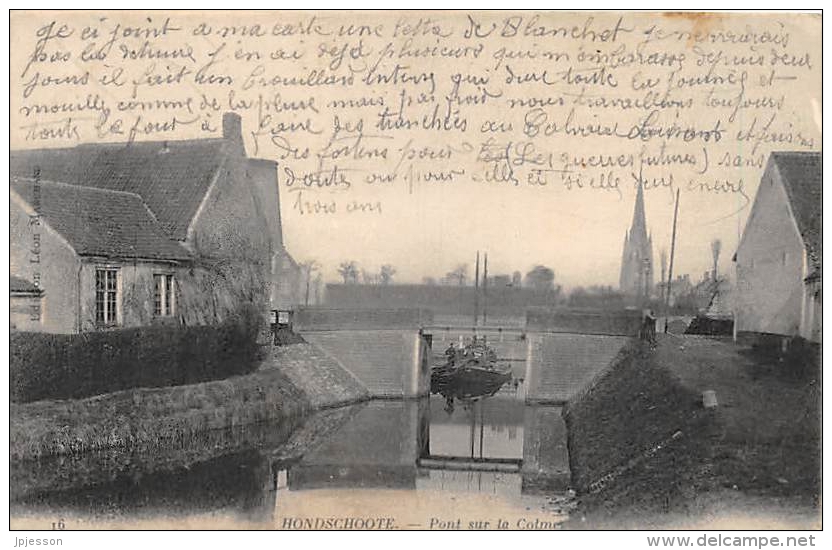 Je ci joint a ma carte une lettre de Blanchet je ne vourais
pas la detruire j'en ai deja plusieurs qui m'enbarasse depuis deux
jours il fait un brouillard intense qui dure toute la journée et
mouille comme de la pluie mais pas froit nous travaillons toujours
toute la faire des tranchées au et faisons
des fortins pour (Les guerres futures) sans
doute ou pour celle ci si elle dure encore
trois ans
Edition Léon
16 HONDSCHOOTE. — Pont sur la Colme
jpjesson
www.delcampe.net